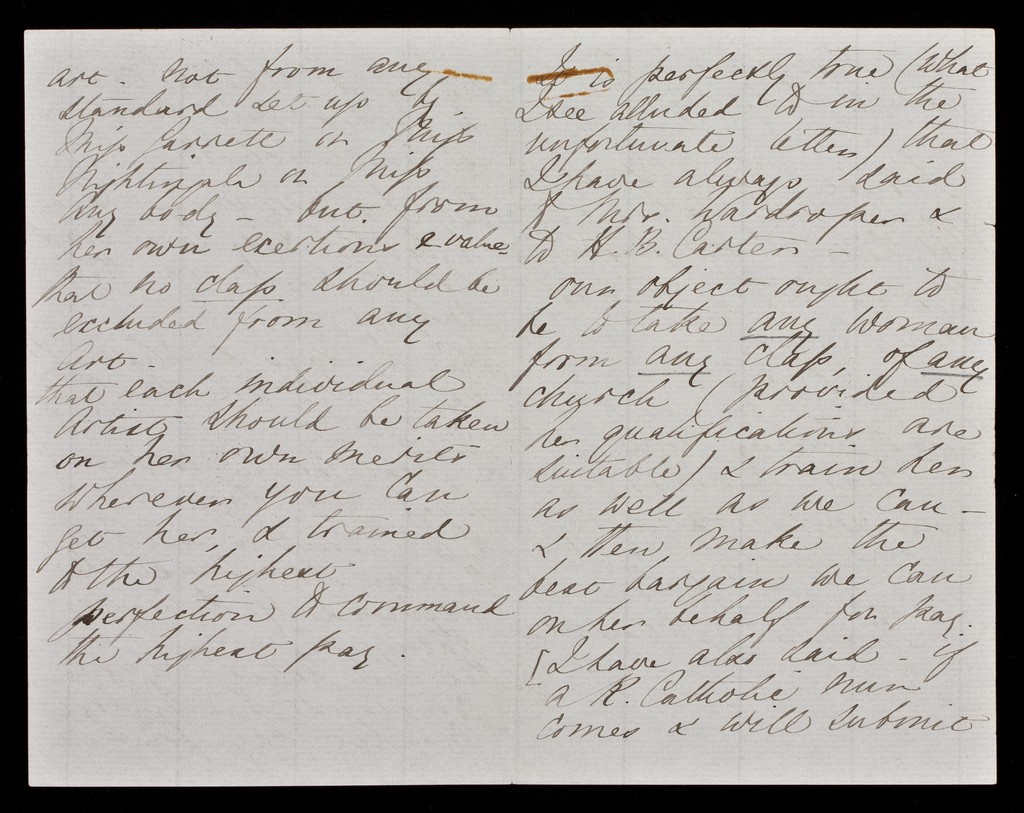 art. not from any
standard set up by
Miss Garrett or Miss
Nightingale or Miss
Any body - but from
her own exertions & value=
that no class should be
excluded from any
Art -
that each individual
Artist should be taken
on her own merits
wherever you can
get her, & trained
to the highest
perfection to command
the highest pay.
It is perfectly true (what
I see alluded to in the
unfortunate letter) that
I have always said
to Mrs. Wardroper &
to H. B. Carter -
our object ought to
be to take any woman
from any class, of any
church (provided
her qualifications are
suitable) & train her
as well as we can -
& then make the
best bargain we can
on her behalf for pay.
[I have also said - if
a R. Catholic nun
comes & will submit